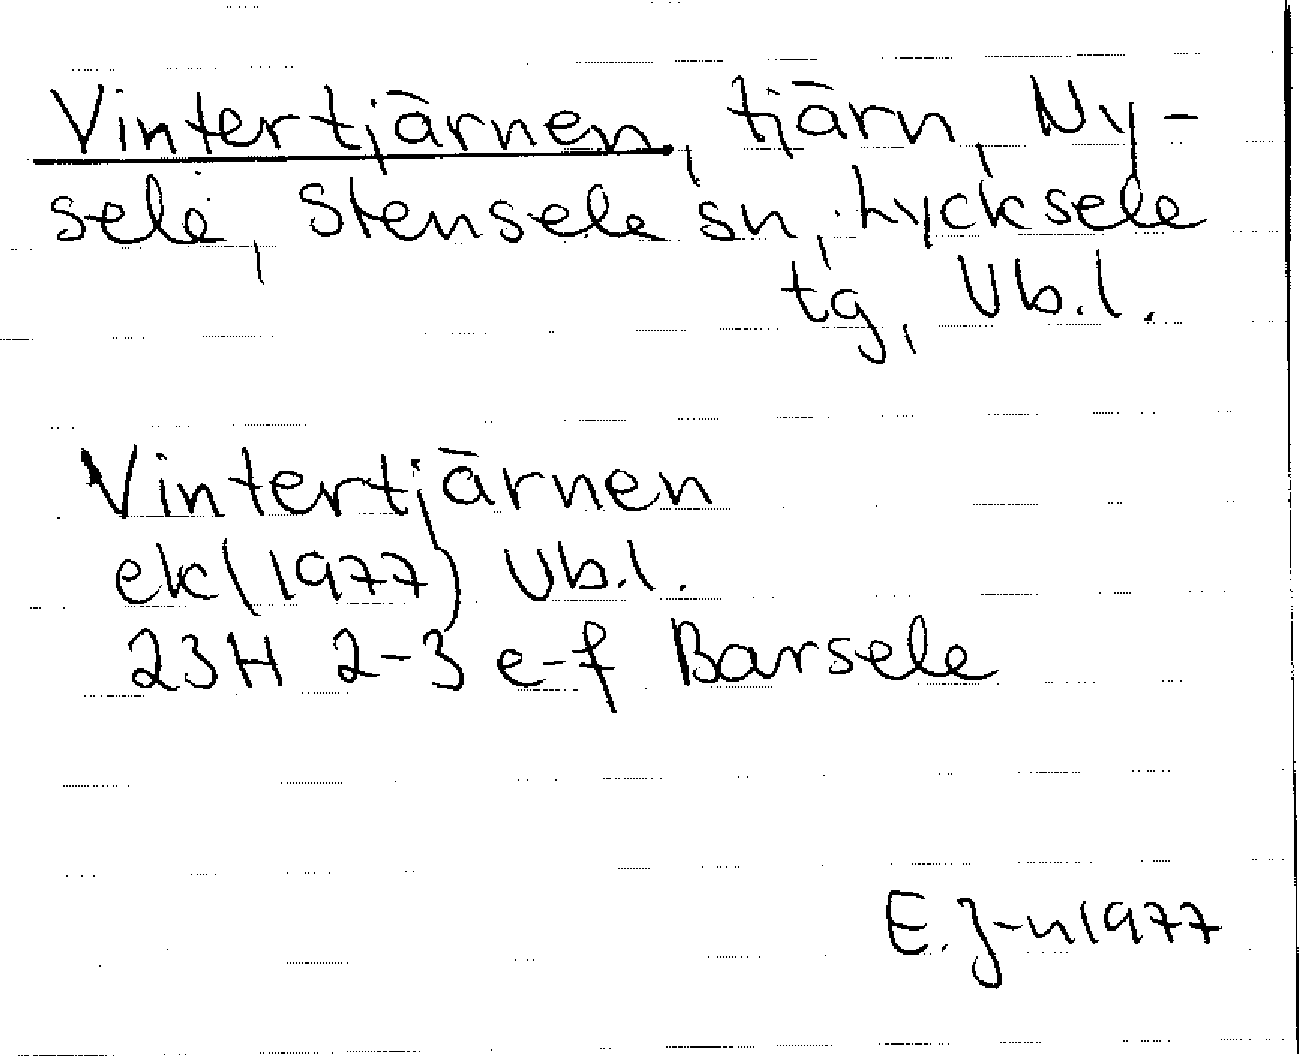 Vintertjärnen, tjärn, Ny-
sele, Stensele sn, Lycksele
tg, Vb.l.
Vintertjärnen
ek (1977) Vb.l.
23H 2-3 e-f Barsele
E.J-n 1977